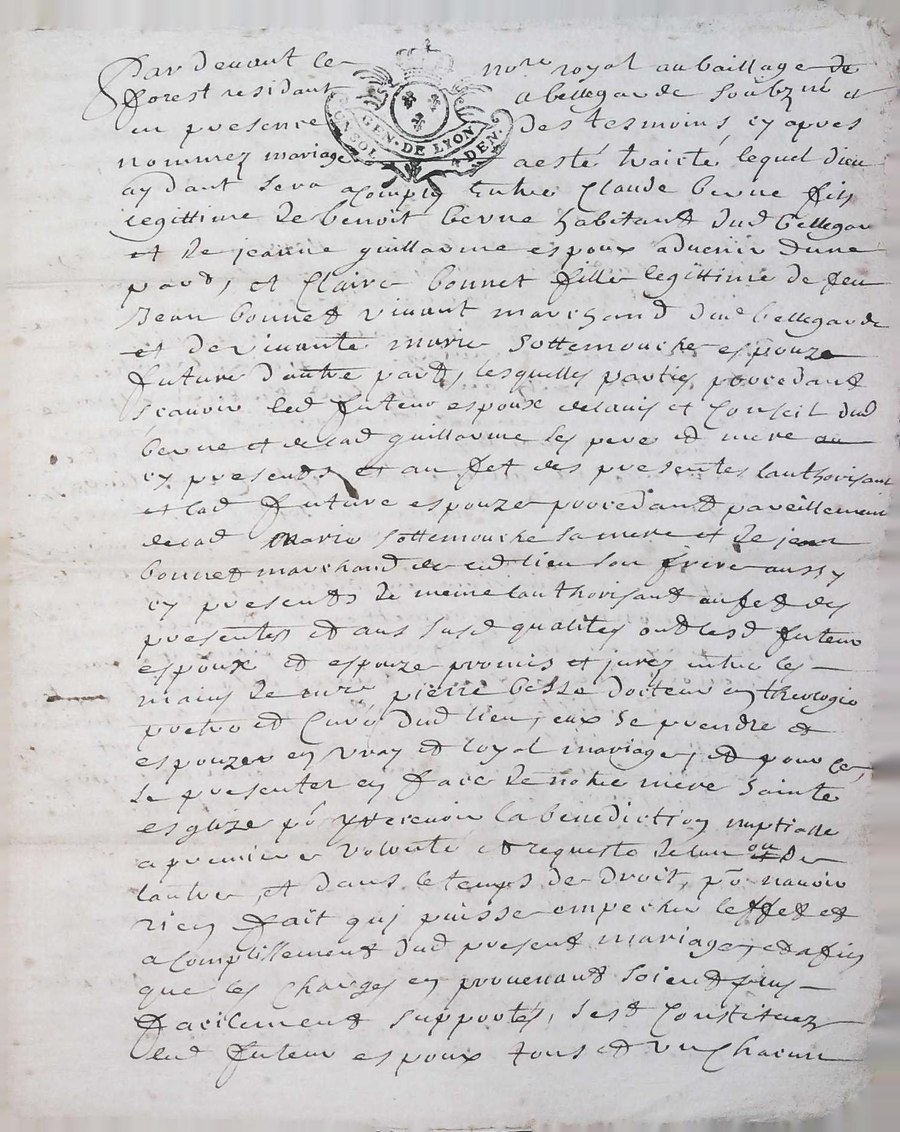 Par devant le no.re royal au bailliage de
forest residant a bellegarde soubzne et
en presence des tesmoins, cy apres
GEN. DE LYON
UN SOL DEN.
nommez mariage a esté traicté lequel dieu
aydant sera acomply Entre Claude berne fils
legittime de benoit berne habitant dud bellegar
et de jeanne guillarme espoux advenir dune
pard, et Claire bonnet fille legittime de feu
Jean bonnet vivant marchand dud bellegarde
et de vivante marie Sottemouche espouze
future dautre part, lesquelles parties procedant
Scavoir led futeur espoux de lavis et Conseil dud
berne et de lad guillarme ses pere et mere
cy presents et au fet des presentes lauthorisant
et lad future espouze procedant pareillement
de lad Marie Sottemouche sa mere et de jean
bonnet marchand de ced lieu son frere aussy
cy presents de meme lauthorisant au fet des
presentes et aus susd qualites ont lesd futeur
espoux et espouze promis et jurez entre les
mains de pierre besse docteur en theologie
pretre et Curé dud lieu, eux se prendre et
espouzer en vray et loyal mariage, et pour ce,
se presenter en face de notre mere sainte
esglize po y recevoir la benediction nuptialle
a premiere volonté et requeste de lun ou de
lautre, et dans le temps de droit, po navoir
rien fait qui puisse empecher leffet et
acomplissement dud present mariage, et afin
que les Charges en provenant soient plus
facilement supportés, sest Constituez
led futeur espoux tous et un Chacun